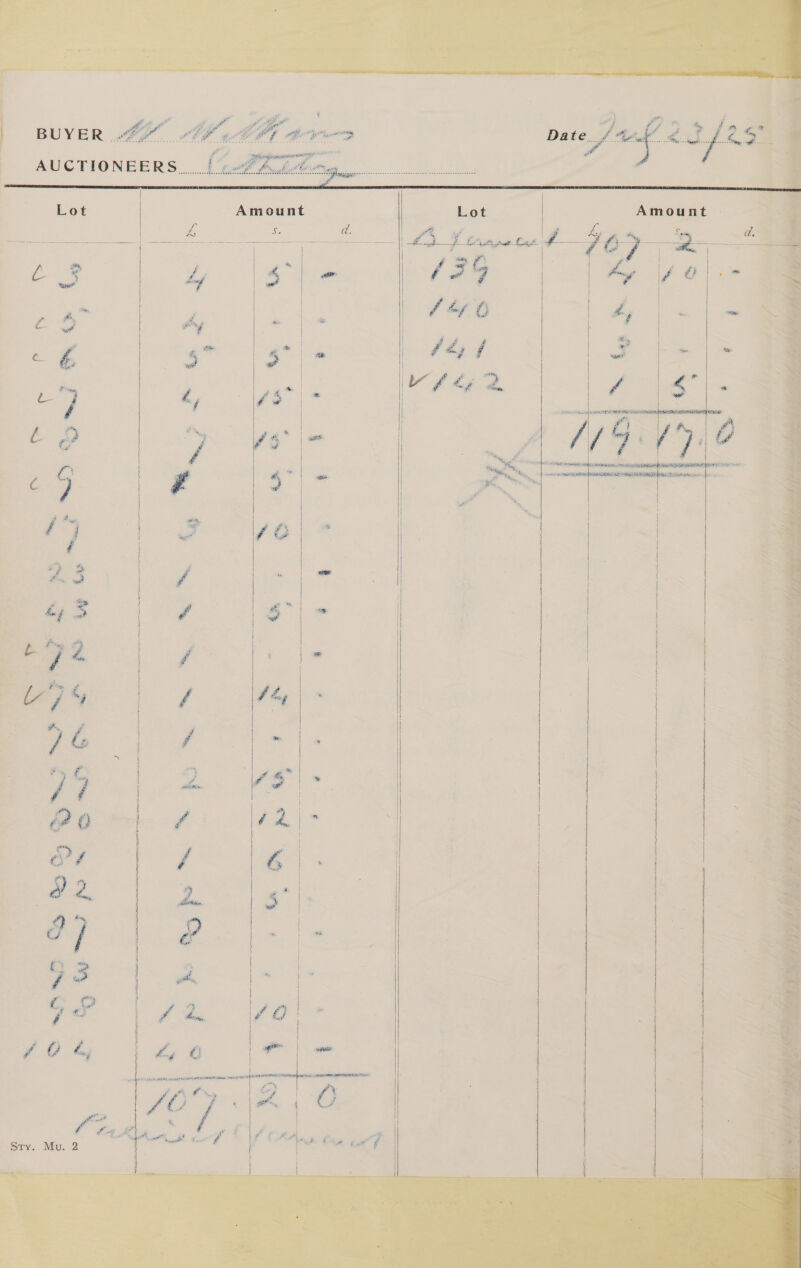 BUYER Date July 23/25
AUCTIONEERS
Lot Amount Lot Amount
£ s. d. £ s. d.
Bt forward 107 2
3 4 5 - 139 4 10 -
5 4 - - 140 4 - -
6 5 5 - 141 3 - -
7 4 15 - 142 1 5 -
8 7 15 - 119.17.0
9 1 5 -
17 3 10 -
23 1 - -
43 1 5 -
72 1 - -
74 1 14 -
76 1 - -
79 2 15 -
80 1 12 -
81 1 6 -
82 2 5 -
87 8 - -
93 2 - -
98 12 10 -
104 40 - -
107.2.0
Carried forward
Sty. Mu. 2